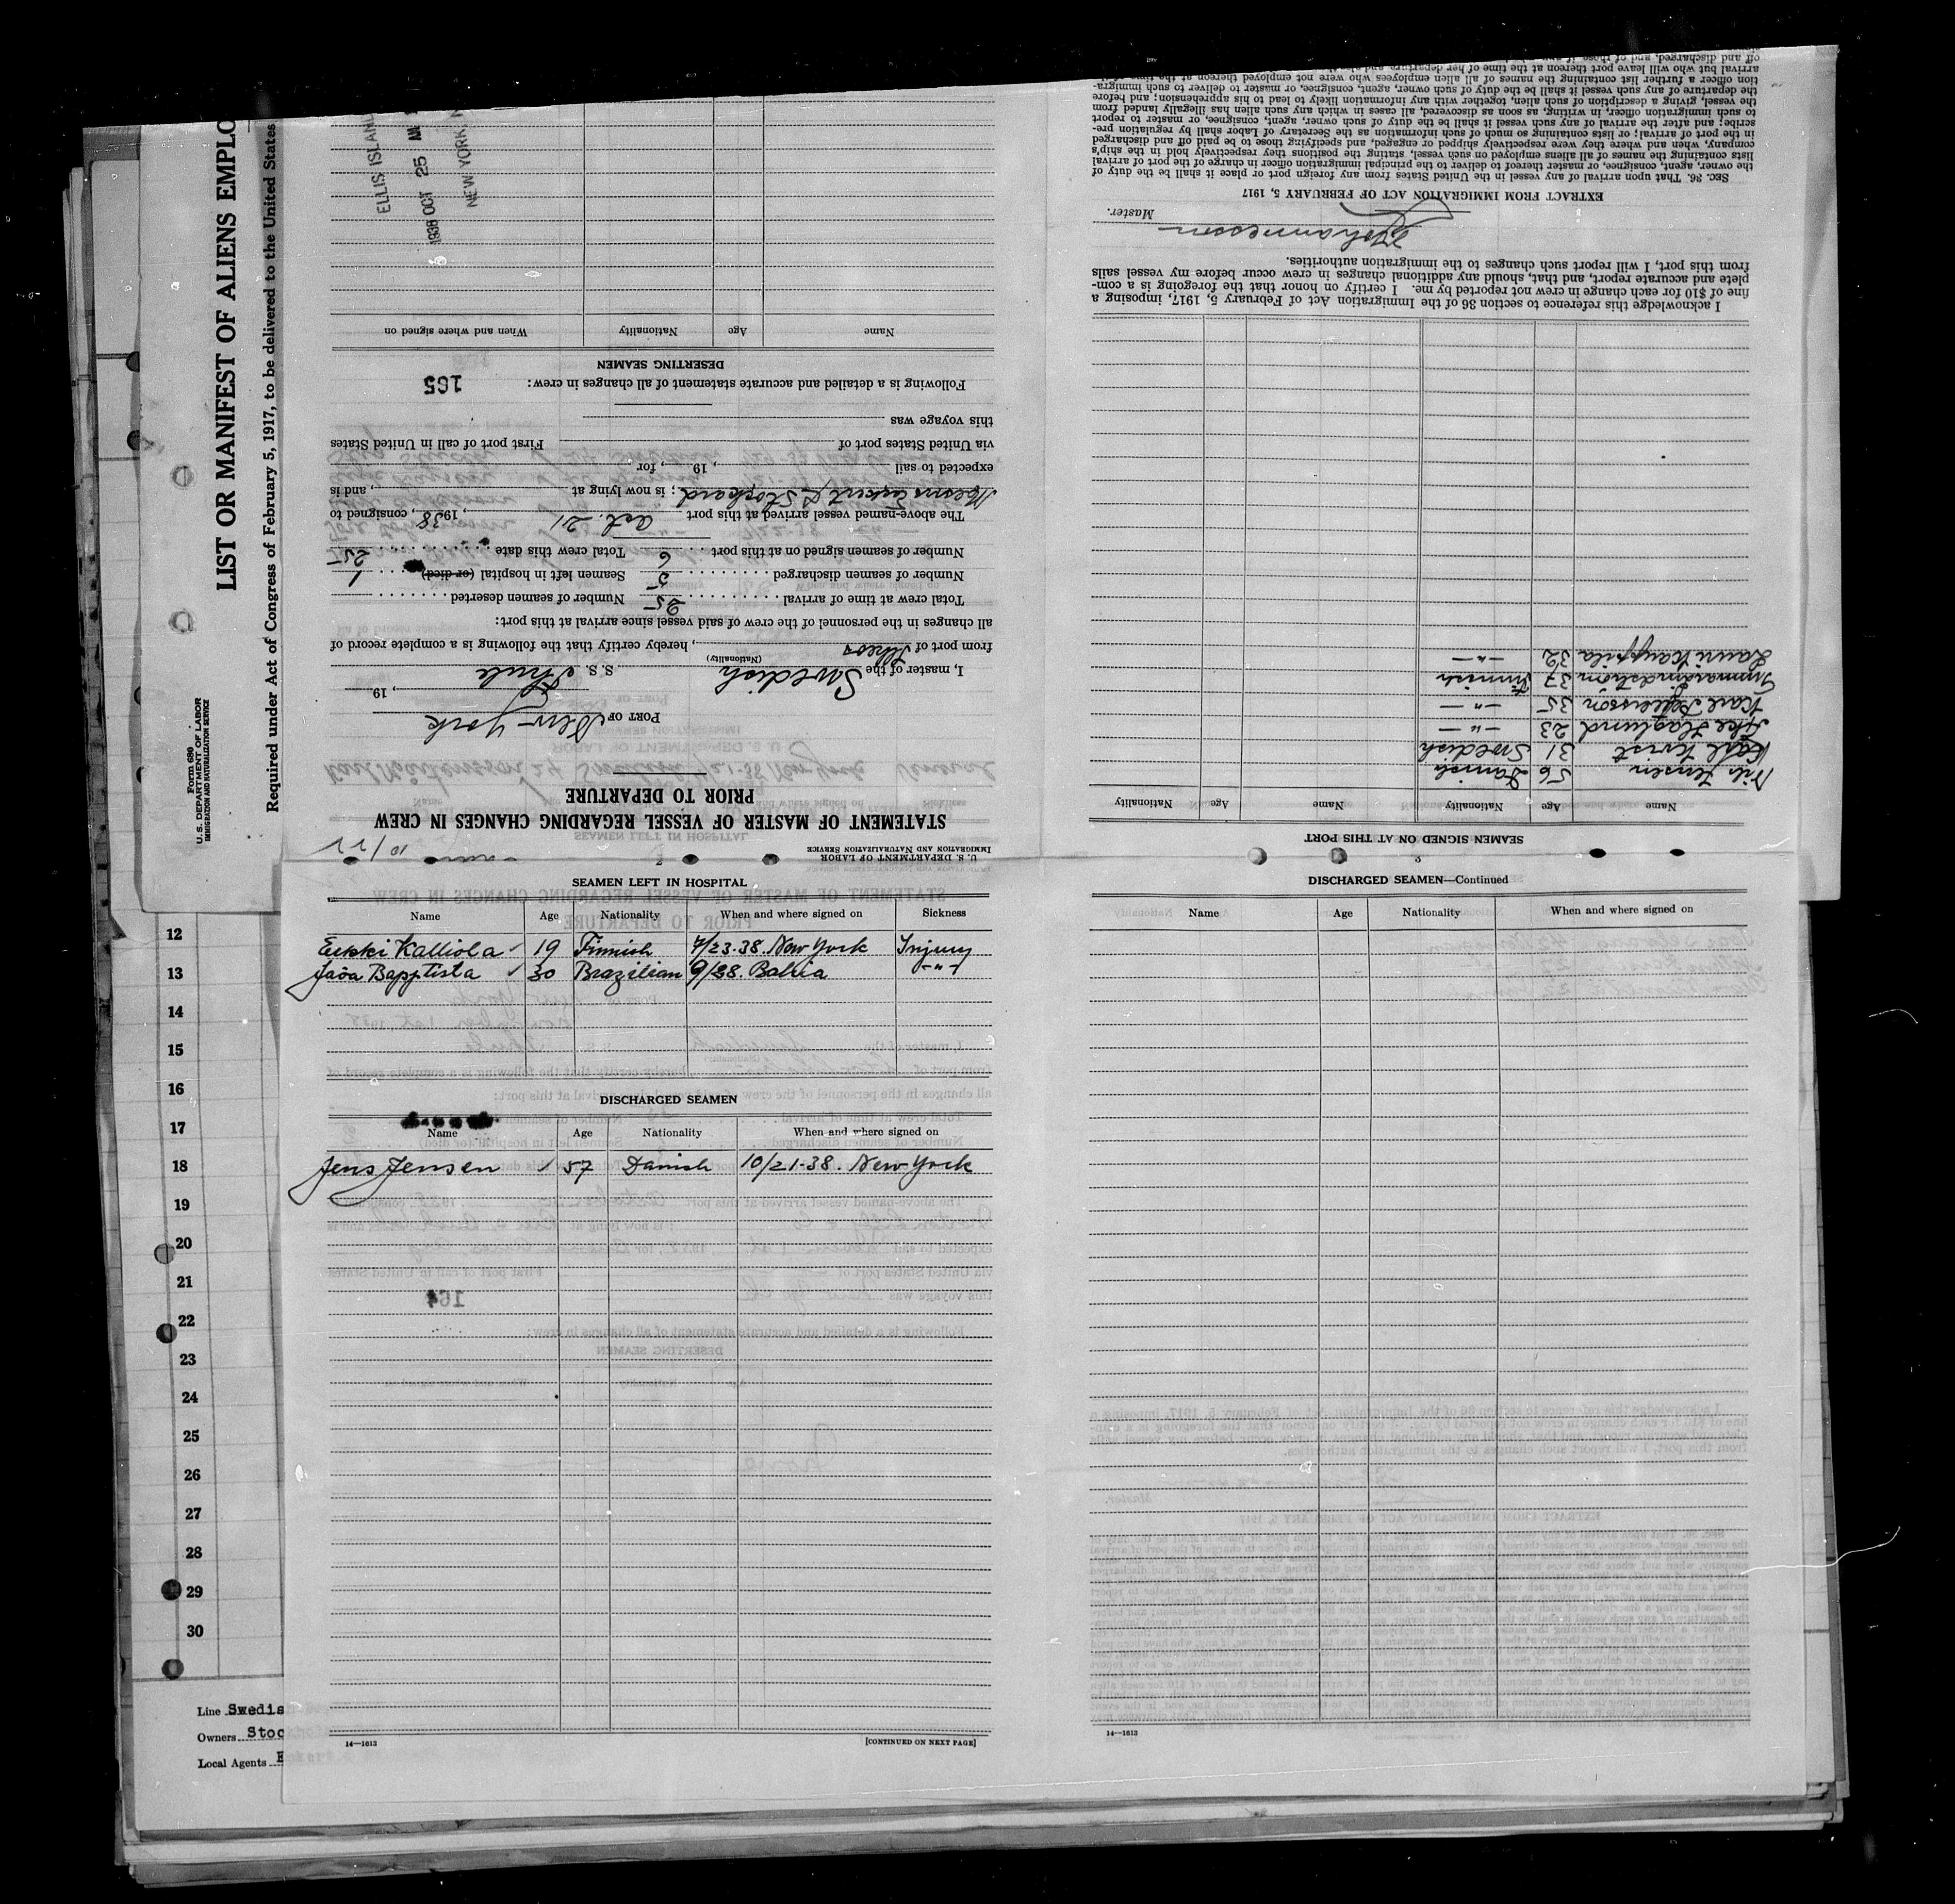 Form 680
U. S. DEPARTMENT OF LABOR
IMMIGRATION AND NATURALIZATION SERVICE
LIST OR MANIFEST OF ALIENS EMPLO
Required under Act of Congress of February 5, 1917, to be delivered to the United States
U. S. DEPARTMENT OF LABOR
IMMIGRATION AND NATURALIZATION SERVICE
10/22
STATEMENT OF MASTER OF VESSEL REGARDING CHANGES IN CREW
PRIOR TO DEPARTURE
PORT OF New-York
, 19
I, master of the Swedish S. S. Thule
(Nationality)
from port of Ilheos, hereby certify that the following is a complete record of
all changes in the personnel of the crew of said vessel since arrival at this port:
Total crew at time of arrival 25 Number of seamen deserted
Number of seamen discharged 5 Seamen left in hospital (or died) 1
Number of seamen signed on at this port 6 Total crew this date 25
The above-named vessel arrived at this port Oct. 21, 1938, consigned to
Messrs Eckert & Stoppard; is now lying at , and is
expected to sail , 19 , for
via United States port of First port of call in United States
this voyage was
Following is a detailed and accurate statement of all changes in crew:
165
DESERTING SEAMEN
Name Age Nationality When and where signed on
ELLIS ISLAND
1938 OCT 25 AM
NEW YORK, N
SEAMEN SIGNED ON AT THIS PORT
Name Age Nationality Name Age Nationality
Nils Jensen 56 Danish
Karl Kvist 31 Swedish
Åke Haglund 23 -"-
Karl Jepersson 35 -"-
37 Finnish
Lauri Kauppila 32 -"-
I acknowledge this reference to section 36 of the Immigration Act of February 5, 1917, imposing a
fine of $10 for each change in crew not reported by me. I certify on honor that the foregoing is a com-
plete and accurate report, and that, should any additional changes in crew occur before my vessel sails
from this port, I will report such changes to the immigration authorities.
Johannesson
Master.
EXTRACT FROM IMMIGRATION ACT OF FEBRUARY 5, 1917
SEC. 36. That upon arrival of any vessel in the United States from any foreign port or place it shall be the duty of
the owner, agent, consignee, or master thereof to deliver to the principal immigration officer in charge of the port of arrival
lists containing the names of all aliens employed on such vessel, stating the positions they respectively hold in the ship's
company, when and where they were respectively shipped or engaged, and specifying those to be paid off and discharged
in the port of arrival; or lists containing so much of such information as the Secretary of Labor shall by regulation pre-
scribe; and after the arrival of any such vessel it shall be the duty of such owner, agent, consignee, or master to report
to such immigration officer, in writing, as soon as discovered, all cases in which any such alien has illegally landed from
the vessel, giving a description of such alien, together with any information likely to lead to his apprehension; and before
the departure of any such vessel it shall be the duty of such owner, agent, consignee, or master to deliver to such immigra-
tion officer a further list containing the names of all alien employees who were not employed thereon at the time of
arrival but who will leave port thereon at the time of her departure
off and discharged, and of those
SEAMEN LEFT IN HOSPITAL
Name Age Nationality When and where signed on Sickness
Eerkki Kalliola 19 Finnish 7/23-38. New York Injury
Jaoa Bapptista 30 Brazilian 9/38. Bahia -"-
DISCHARGED SEAMEN
Name Age Nationality When and where signed on
Jens Jensen 57 Danish 10/21-38. New-York
14—1613
[CONTINUED ON NEXT PAGE]
DISCHARGED SEAMEN—Continued
Name Age Nationality When and where signed on
14—1613
12
13
14
15
16
17
18
19
20
21
22
23
24
25
26
27
28
29
30
Line Swedis
Owners Stoc
Local Agents E